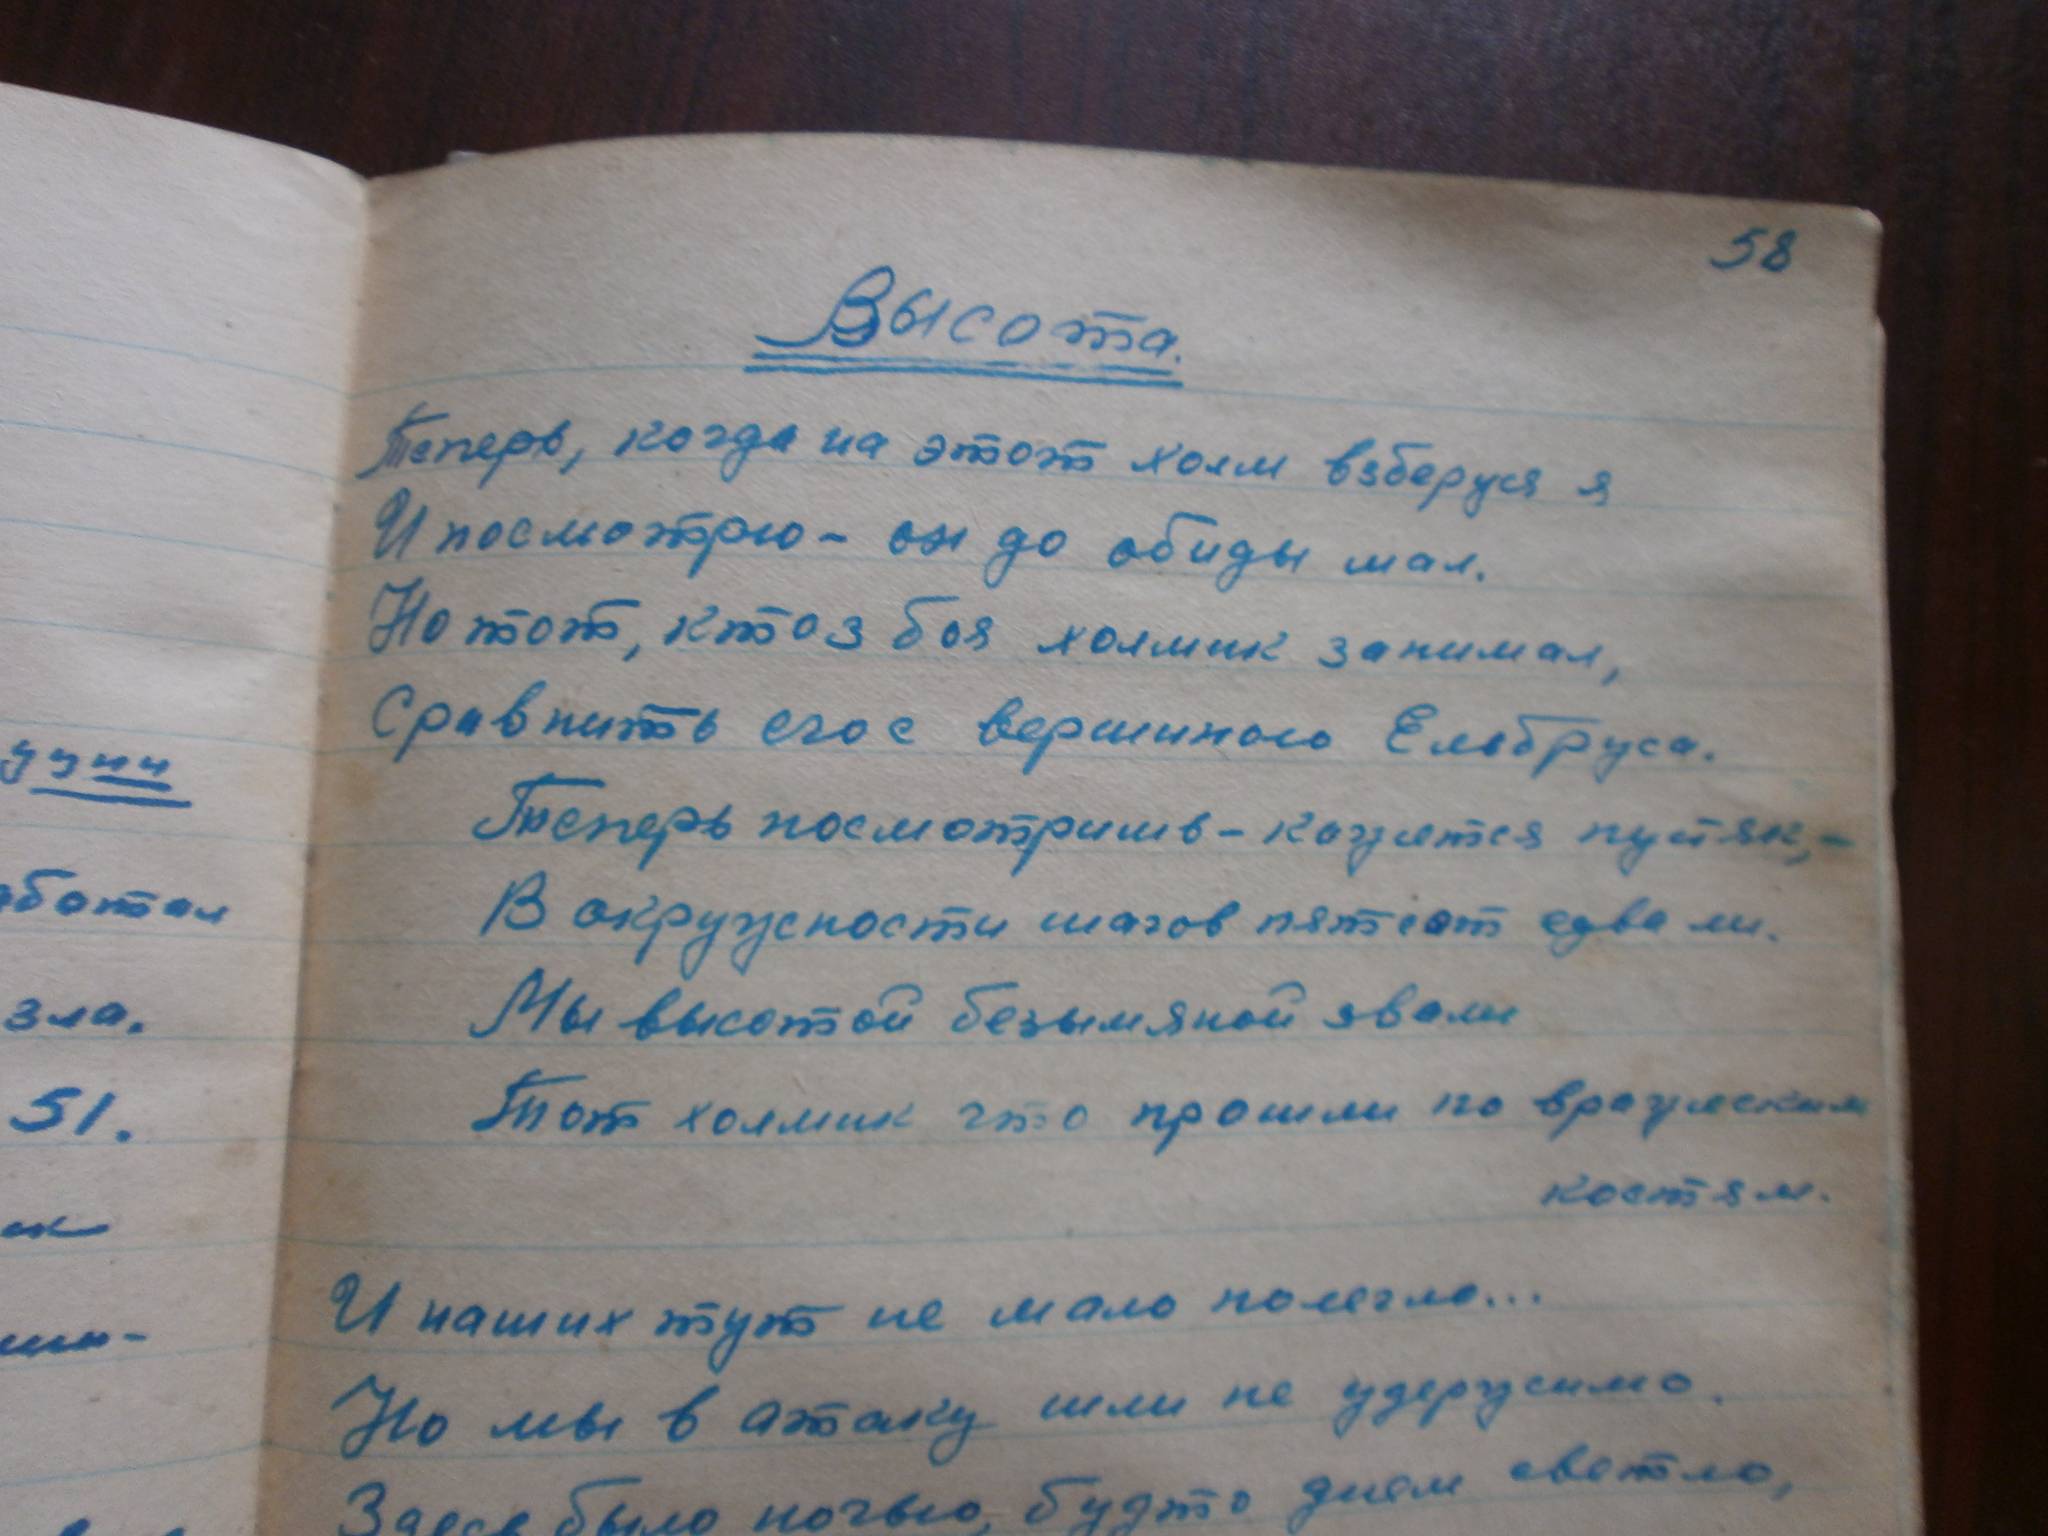 58
Высота.
Теперь, когда на этот холм взберуся я
И посмотрю - он до обиды мал.
Но тот, кто з боя холмик занимал,
Сравнить его с вершиною Ельбруса.
Теперь посмотришь - кажется пустяк, -
В окружности шагов пятьсот едва ли.
Мы высотой безымяной звали
Тот холмик что прошли по вражеским
костям.
И наших тут не мало полегло...
Но мы в атаку шли не удержимо.
Здесь было ночью, будто днем светло,
зла.
51.